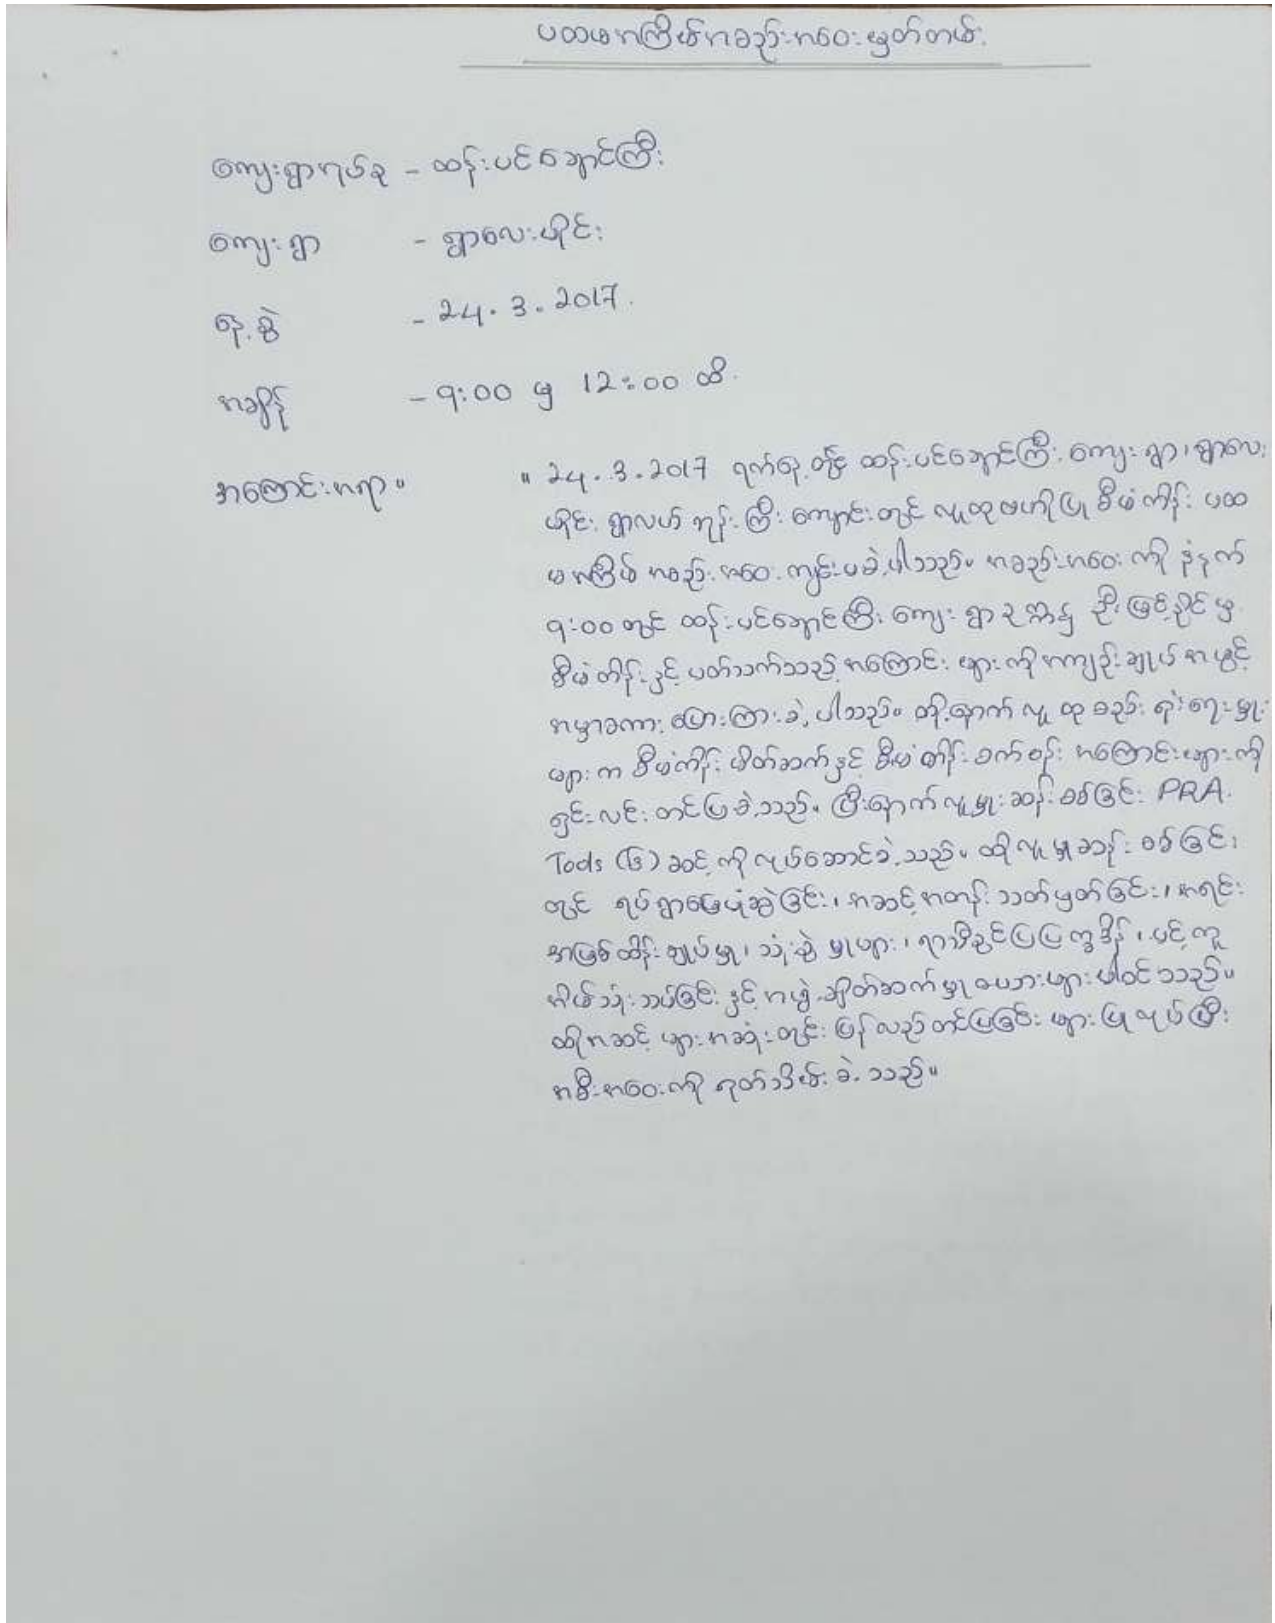 ပထမအကြိမ်အစည်းအဝေးမှတ်တမ်း
ကျေးရွာအုပ်စု - ထန်းပင်ချောင်ကြီး
ကျေးရွာ - ရွာလေးပိုင်း
နေ့စွဲ - 24.3.2017.
အချိန် - 9:00 မှ 12:00 ထိ
အကြောင်းအရာ။ ။ 24.3.2017 ရက်နေ့တွင် ထန်းပင်ချောင်ကြီး ကျေးရွာ၊ ရွာလေး
ပိုင်း ရွာလယ် ဘုန်းကြီးကျောင်းတွင် လူထုဗဟိုပြု စီမံကိန်း ပထ
မအကြိမ် အစည်းအဝေး ကျင်းပခဲ့ပါသည်။ အစည်းအဝေးကို နံနက်
9:00 တွင် ထန်းပင်ချောင်ကြီး ကျေးရွာ ဥက္ကဋ္ဌ ဦးမြင့်နိုင်မှ
စီမံကိန်းနှင့် ပတ်သက်သည့် အကြောင်းများကို အကျဉ်းချုပ် အဖွင့်
အမှာစကား ပြောကြားခဲ့ပါသည်။ ထို့နောက် လူထုစည်းရုံးရေးမှူး
များက စီမံကိန်း မိတ်ဆက်နှင့် စီမံကိန်း စက်ဝန်း အကြောင်းများကို
ရှင်းလင်းတင်ပြခဲ့သည်။ ပြီးနောက် လူမှုဆန်းစစ်ခြင်း PRA
Tools (၆) ဆင့်ကို လုပ်ဆောင်ခဲ့သည်။ ထိုလူမှုဆန်းစစ်ခြင်း
တွင် ရပ်ရွာမြေပုံဆွဲခြင်း၊ အဆင့်အတန်းသတ်မှတ်ခြင်း၊ အရင်း
အမြစ်ထိန်းချုပ်မှု၊ သုံးစွဲမှုများ၊ ရာသီခွင်ပြပြက္ခဒိန်၊ ပင့်ကူ
အိမ်သုံးသပ်ခြင်းနှင့် အဖွဲ့ချိတ်ဆက်မှု ဇယားများပါဝင်သည်။
ထိုအဆင့်များအဆုံးတွင် ပြန်လည်တင်ပြခြင်းများ ပြုလုပ်ပြီး
အစီးအဝေးကို ရုတ်သိမ်းခဲ့သည်။